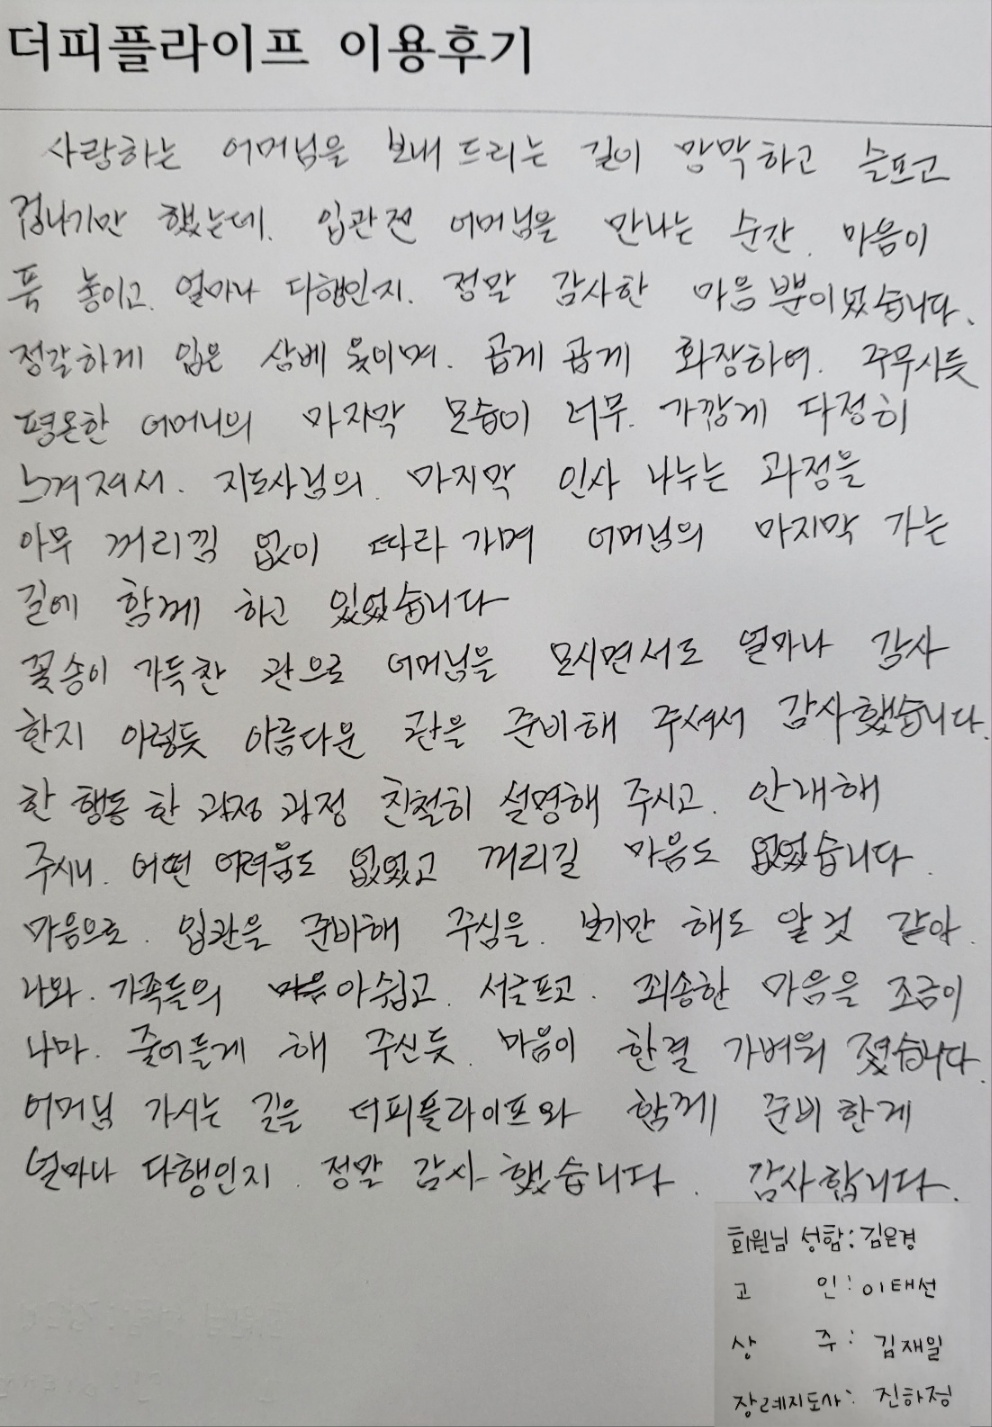 더피플라이프 이용후기
사랑하는 어머님을 보내 드리는 길이 망막하고 슬프고
겁나기만 했는데. 입관전 어머님을 만나는 순간. 마음이
푹 놓이고. 얼마나 다행인지. 정말 감사한 마음뿐이였습니다.
정갈하게 입은 삼베 옷이며. 곱게 곱게 화장하여. 주무시듯
평온한 어머니의 마지막 모습이 너무. 가깝게 다정히
느껴져서. 지도사님의. 마지막 인사 나누는 과정을
아무 꺼리낌 없이 따라 가며 어머님의 마지막 가는
길에 함께 하고 있었습니다
꽃송이 가득찬 관으로 어머님을 모시면서도 얼마나 감사
한지 이렇듯 아름다운 관을 준비해 주셔서 감사했습니다.
한 행동 한 과정 과정 친철히 설명해 주시고. 안내해
주시니. 어떤 어려움도 없었고 꺼리길 마음도 없었습니다.
마음으로. 입관을 준비해 주심을. 보기만 해도 알것 같아.
나와. 가족들의 아쉽고. 서글프고. 죄송한 마음을 조금이
나마. 줄어들게 해 주신듯. 마음이 한결 가벼워 졌습니다.
어머님 가시는 길을 더피플라이프와 함께 준비한게
얼마나 다행인지. 정말 감사했습니다. 감사합니다.
회원님 성함: 김은경
고 인: 이태선
상 주: 김재일
장례지도사: 진하정